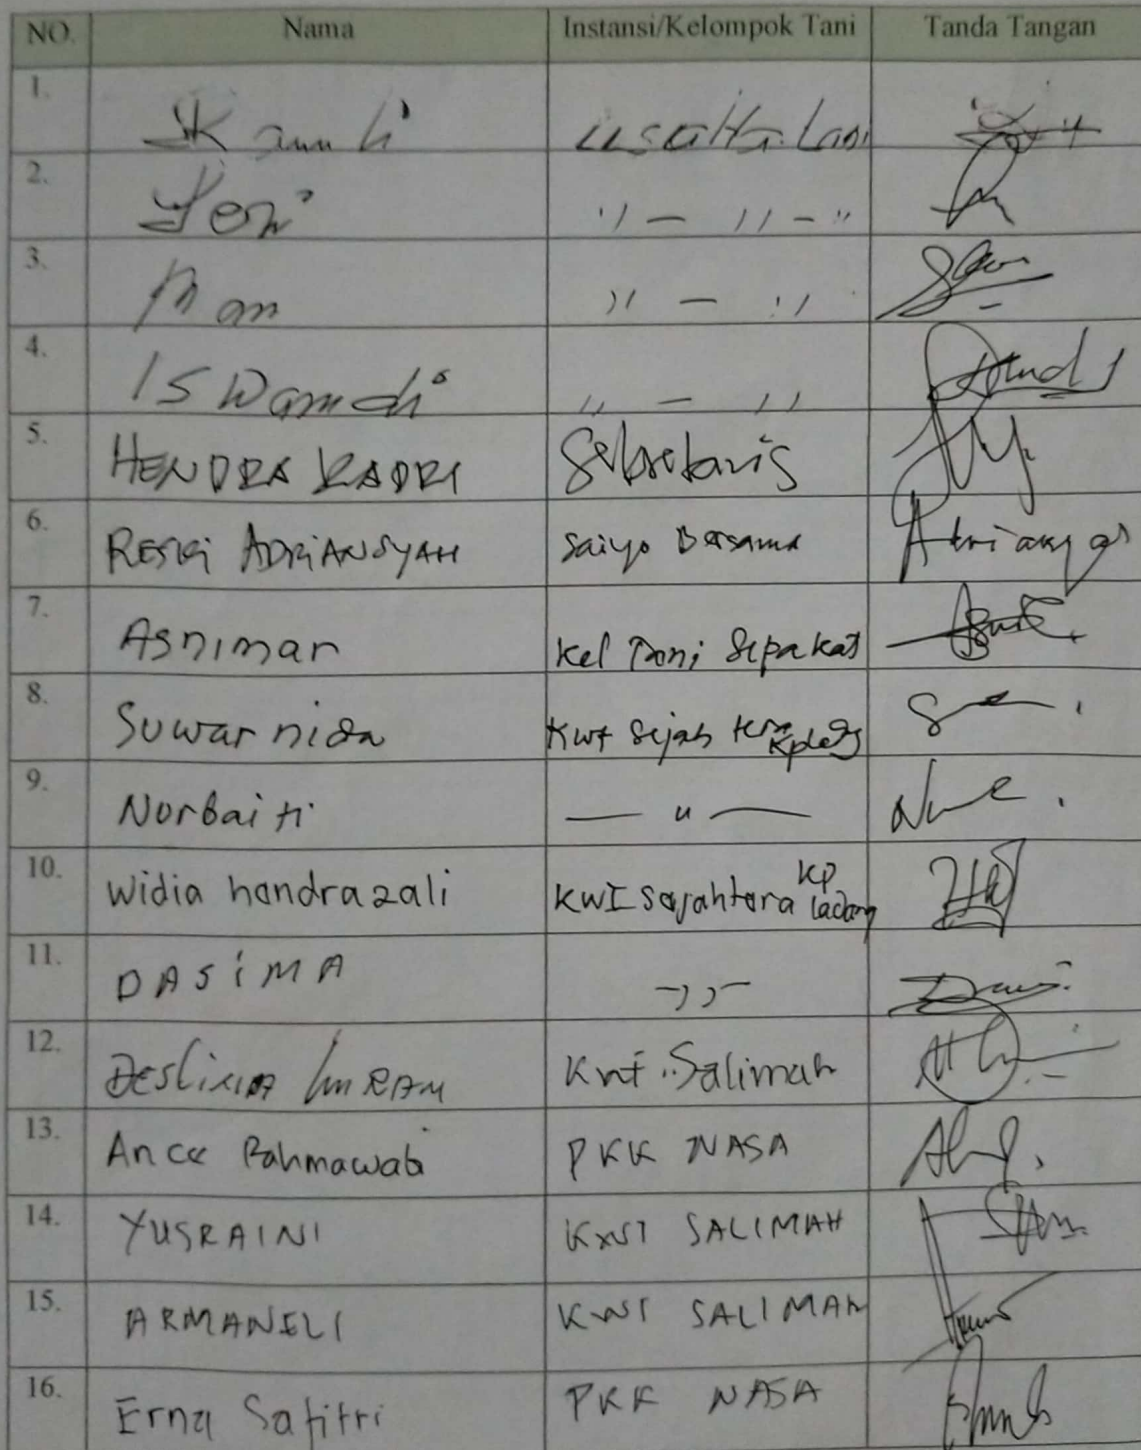 NO. Nama Instansi/Kelompok Tani Tanda Tangan
1. usaha tani
2. Yeni " - " - "
3. Man " - "
4. ISwandi " - "
5. HENDRA KADRI Sekretaris
6. RESKI ADRIANSYAH Saiyo Bersama
7. Asnimar Kel Tani Sepakat
8. Suwarnida Kwt Sejahtera Kpldg
9. Norbaiti — " —
10. Widia handrazali KWT Sajahtera kp ladang
11. DASIMA - ,, -
12. Kwt. Salimah
13. Ance Rahmawati PKK NASA
14. YUSRAINI KWT SALIMAH
15. ARMANELI KWT SALIMAH
16. Erna Safitri PKK NASA